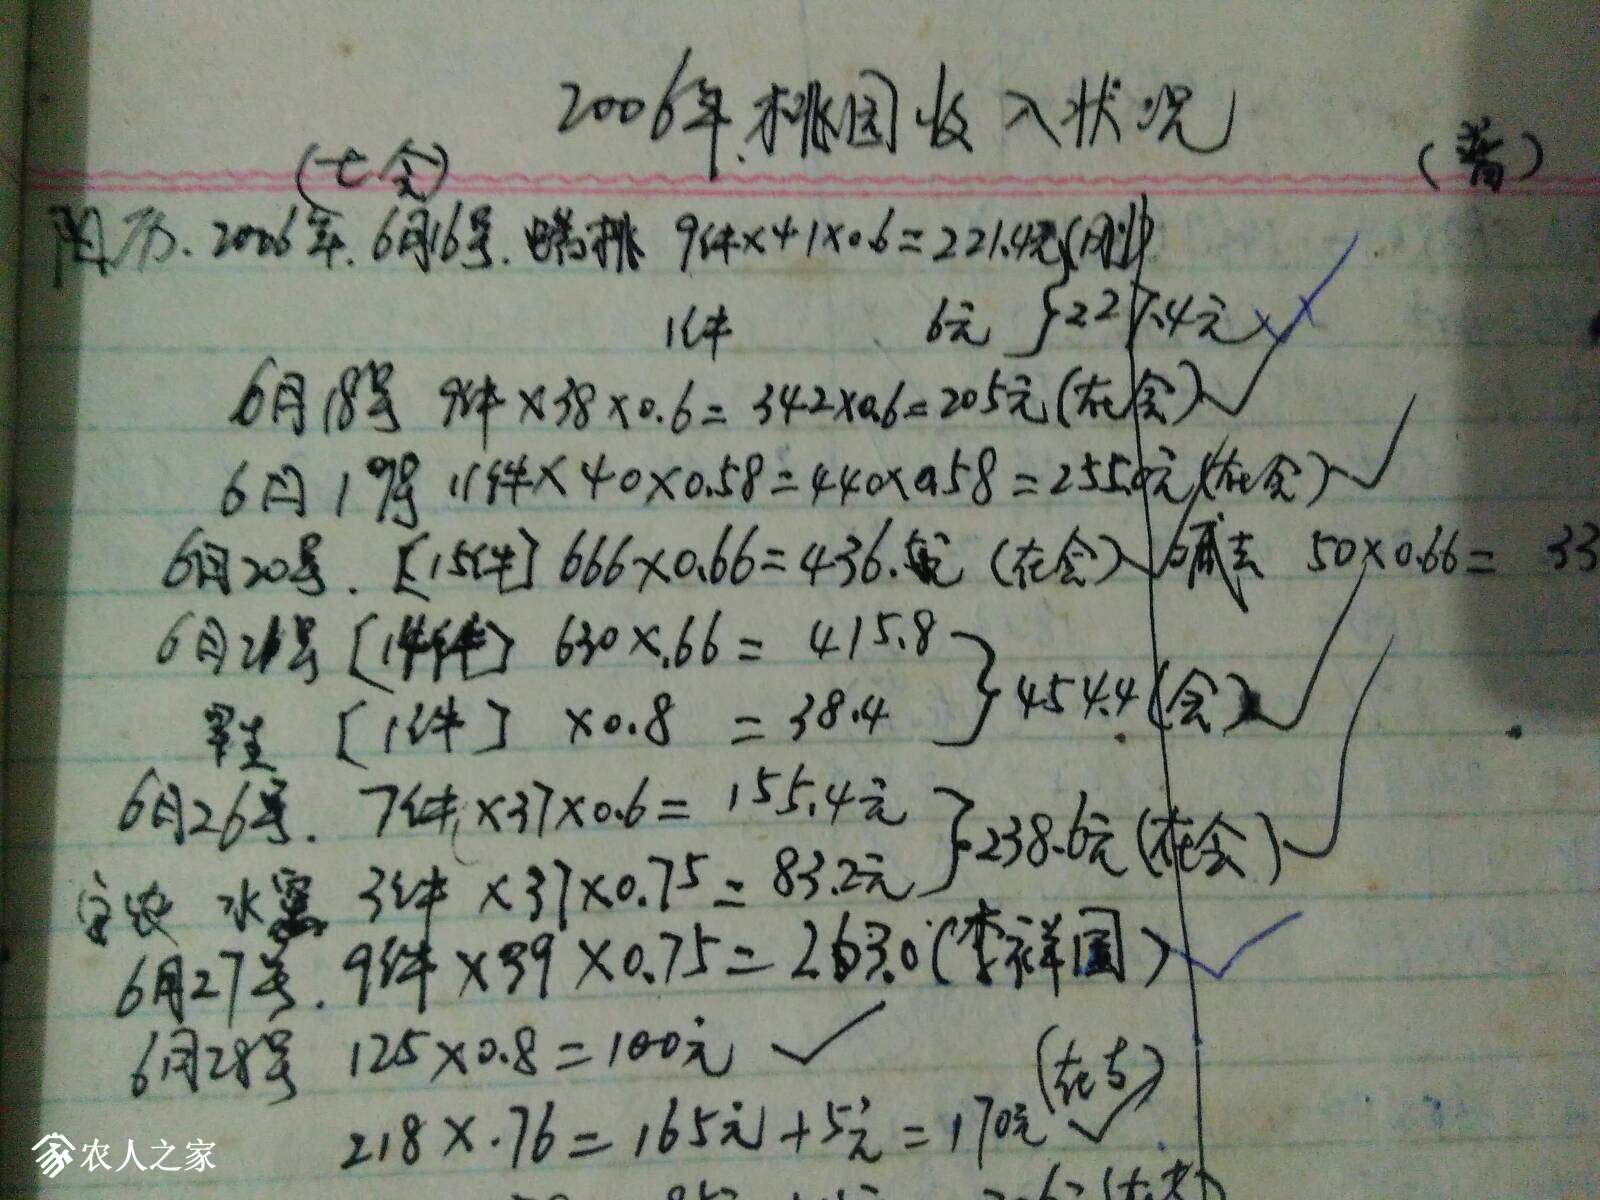 2006年桃园收入状况
(七会)
阳历.2006年.6月16号. 桃 9件×41×0.6=221.4元
1件 6元 }227.4元
6月18号 9件×38×0.6=342×0.6=205元(在会)
6月19号 11件×40×0.58=440×0.58=255.0元(在会)
6月20号.[15件] 666×0.66=436.5元 (在会) 减去 50×0.66= 33
6月21号 [14件] 630×.66= 415.8
[1件] ×0.8 =38.4 }454.4(会)
6月26号. 7件×37×0.6= 155.4元
水蜜 3件×37×0.75=83.2元 }238.6元(在会)
6月27号.9件×39×0.75=263.0(李祥国)
6月28号 125×0.8=100元
218×.76=165元+5元=170元
农人之家